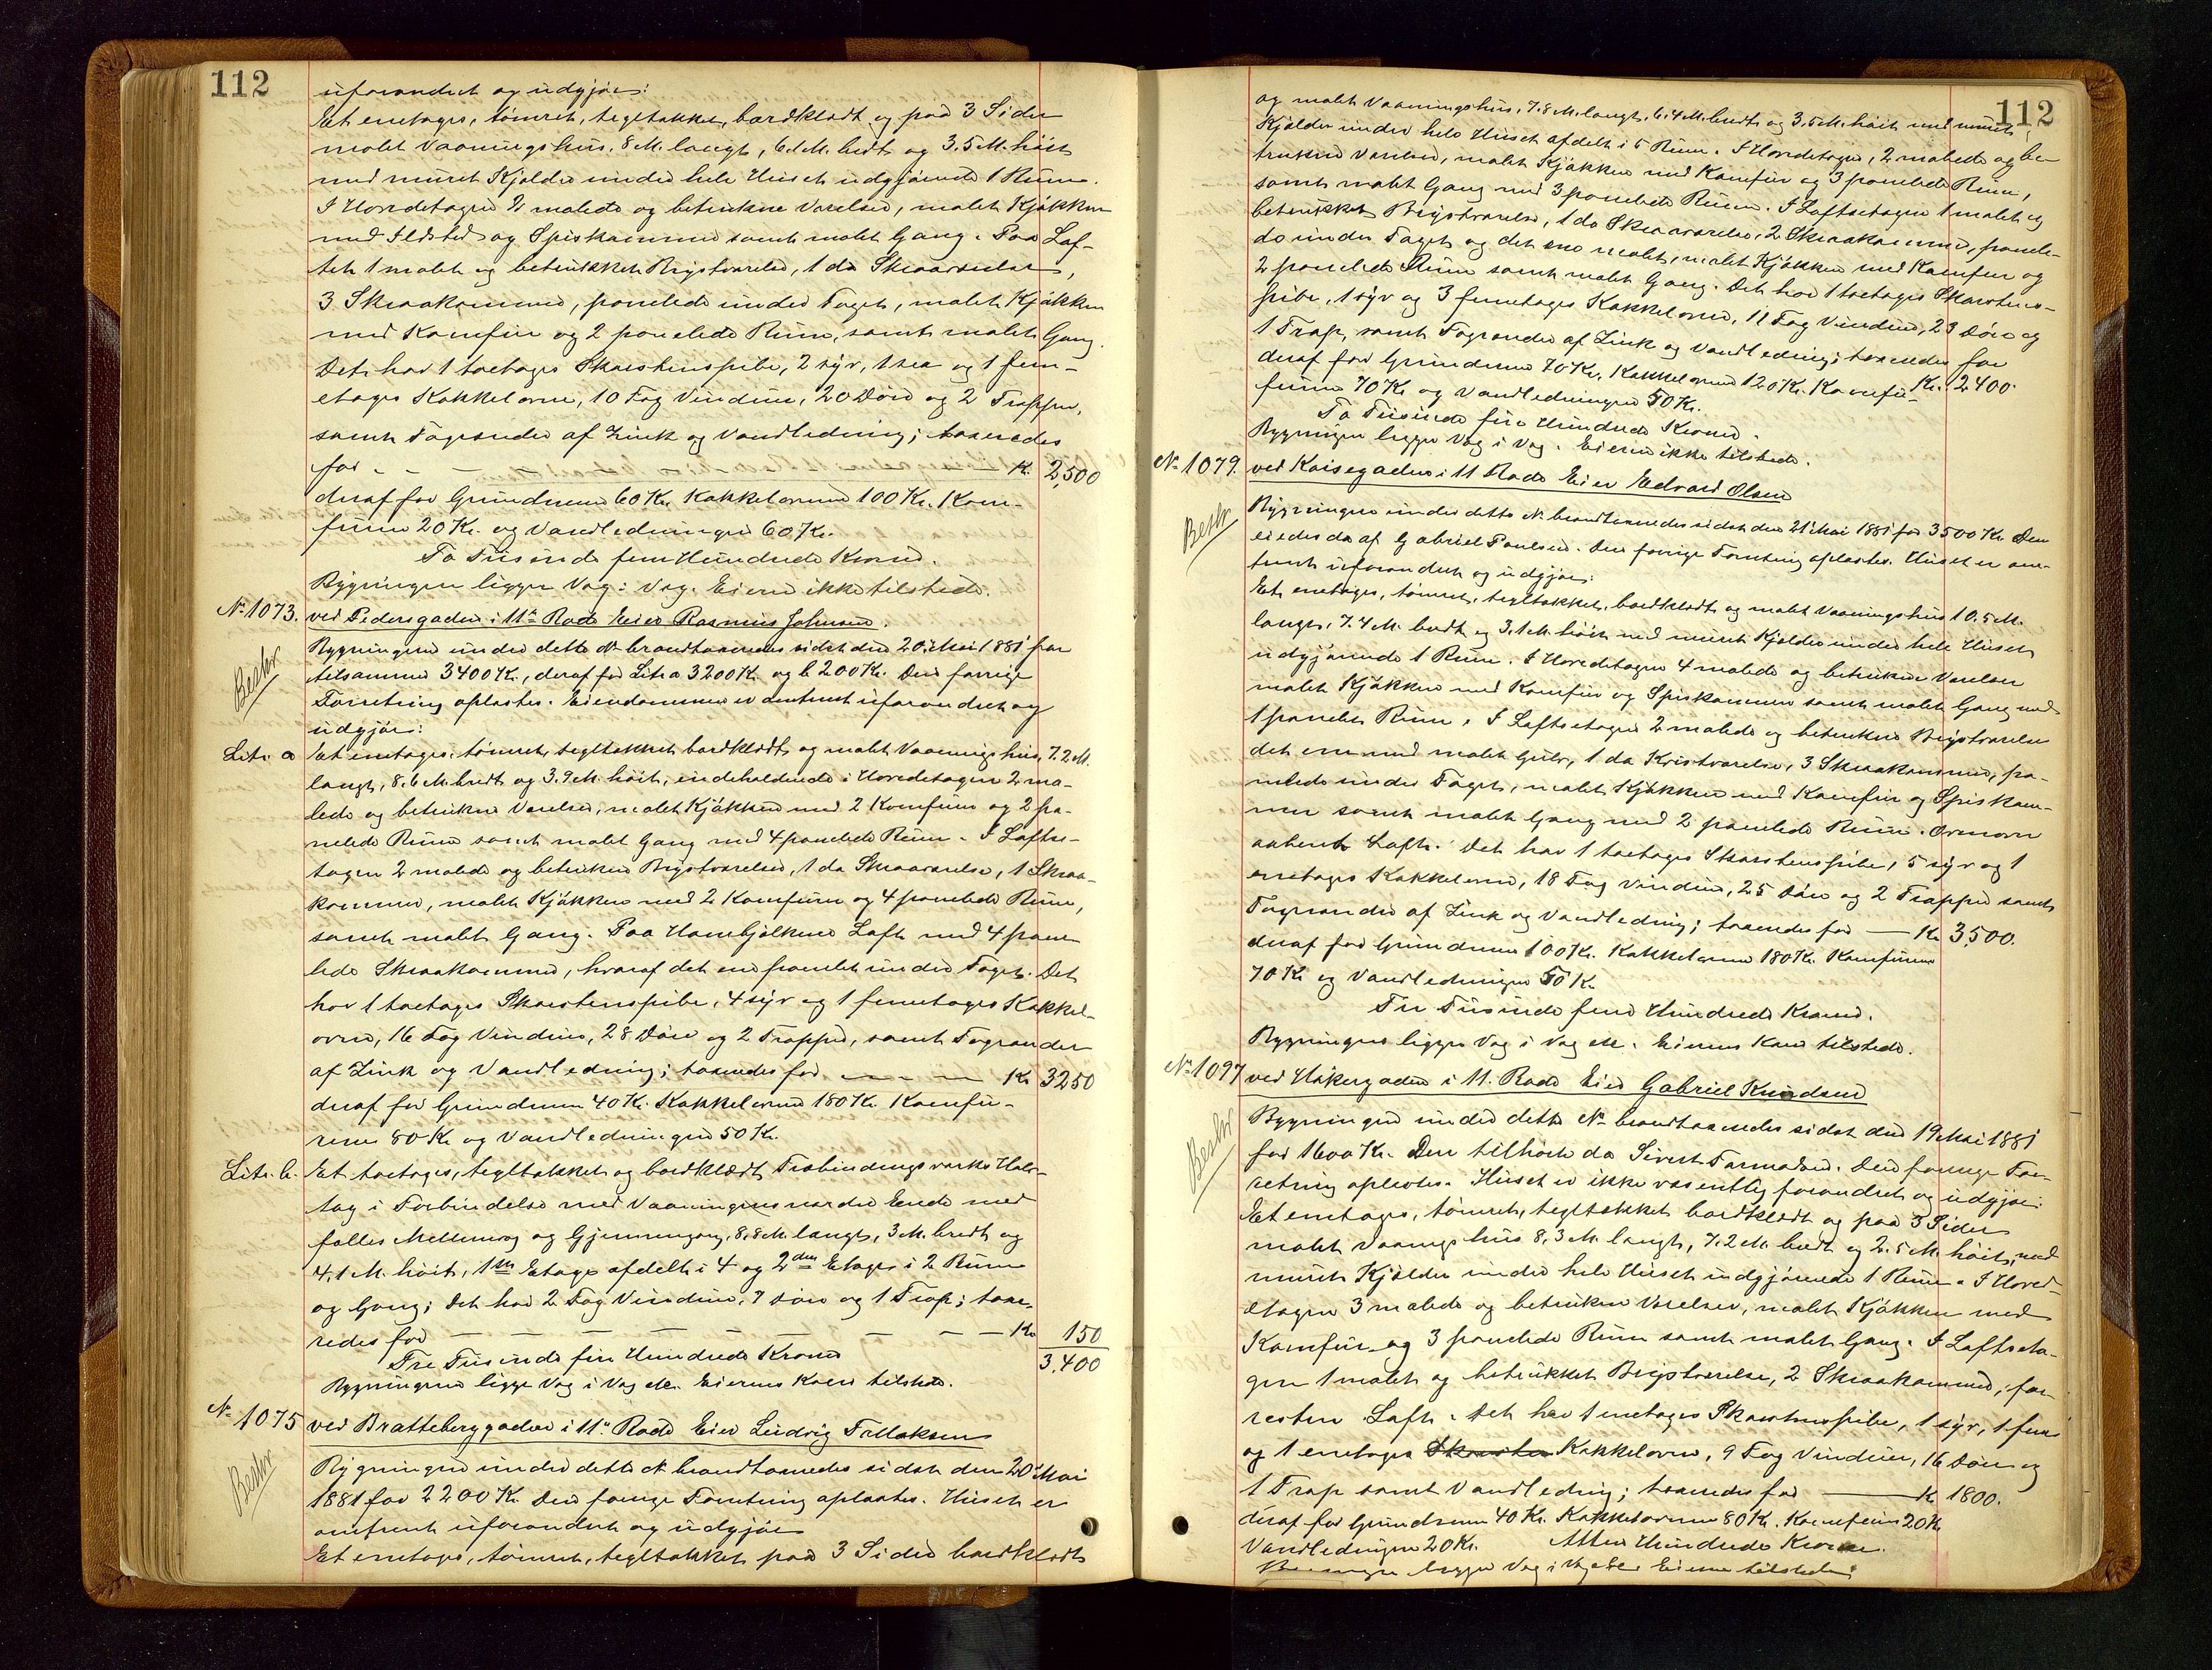 112
uforandret og udgjør:
Et enetages, tømret, tegltækket, bordklædt og paa 3 Sider
malet Vaaningshus, 8 M. langt, 6.1 M. bredt og 3.5 M. høit
med muret Kjelder under hele Huset udgjørende 1 Rum.
I Hovedetagen 2 malede og betrukne Værelser, malet Kjøkken
med Ildsted og Spiskammer samt malet Gang. Paa Lof-
tet 1 malet og betrukket Brystværelse, 1 do Skraaværelse,
3 Skraakammer, panelede under Taget, malet Kjøkken
med Komfur og 2 panelede Rum, samt malet Gang.
Det har 1 toetages Skorstenspibe, 2 syv, 1 sex og 1 fem-
etages Kakkelovne, 10 Fag Vinduer, 20 Døre og 2 Trapper,
samt Tagrender af Zink og Vandledning; taxeredes
for - - - Kr. 2,500
deraf for Grundmuren 60 Kr. Kakkelovnene 100 Kr. Kom-
furen 20 Kr. og Vandledningen 60 Kr.
To Tusinde fem Hundrede Kroner.
Bygningen ligger Væg i Væg. Eieren ikke tilstede.
No 1073. ved Pedersgaden i 11te Rode Eier Rasmus Johnsen.
Bestv Bygningerne under dette No brandtaxeredes sidst den 20 Mai 1881 for
tilsammen 3400 Kr., deraf for Litr a 3200 Kr. og b 200 Kr. Den forrige
Forretning oplæstes. Eiendommen er omtrent uforandret og
udgjør:
Litr. a Et enetages, tømret, tegltækket bordklædt og malet Vaaningshus, 7.2 M.
langt, 8.6 M. bredt og 3.9 M. høit, indeholdende i Hovedetagen 2 ma-
lede og betrukne Værelser, malet Kjøkken med 2 Komfurer og 2 pa-
nelede Rum samt malet Gang med 4 panelede Rum. I Loftse-
tagen 2 malede og betrukne Brystværelser, 1 do Skraaværelse, 1 Skraa-
kammer, malet Kjøkken med 2 Komfurer og 4 panelede Rum,
samt malet Gang. Paa Hanebjelkene Loft med 4 pane-
lede Skraakammer, hvoraf det ene panelet under Taget. Det
har 1 toetages Skorstenspibe, 4 syv og 1 femetages Kakkel-
ovne, 16 Fag Vinduer, 28 Døre og 2 Trapper, samt Tagrender
af Zink og Vandledning; taxeredes for - - - Kr 3250
deraf for Grundmuren 40 Kr. Kakkelovnene 180 Kr. Komfu-
rene 80 Kr og Vandledningen 50 Kr.
Litr. b. Et toetages, tegltækket og bordklædt Træbindingsværks Halv-
tag i Forbindelse med Vaaningens nordre Ende med
fælles Mellemvæg og Gjennemgang, 8,8 M. langt, 3 M. bredt og
4,1 M. høit, 1ste Etage afdelt i 4 og 2den Etage i 2 Rum
og Gang; Det har 2 Fag Vinduer, 7 Døre og 1 Trap; taxe-
redes for - - - - - - - Kr 150
Tre Tusinde fire Hundrede Kroner 3,400
Bygningerne ligge Væg i Væg etc. Eierens Kone tilstede.
No 1075 ved Brattebergaden i 11te Rode Eier Ludvig Tollaksen
Bestv Bygningen under dette No brandtaxeredes sidst den 20 Mai
1881 for 2200 Kr. Den forrige Forretning oplæstes. Huset er
omtrent uforandret og udgjør
Et enetages, tømret, tegltækket paa 3 Sider bordklædt
112
og malet Vaaningshus, 7.8 M. langt, 6.4 M. bredt og 3,5 M. høit med muret
Kjelder under hele Huset afdelt i 5 Rum. I Hovedetagen, 2 malede og be-
trukne Værelser, malet Kjøkken med Komfur og 3 panelede Rum,
samt malet Gang med 3 panelede Rum. I Loftsetagen 1 malet og
betrukket Brystværelse, 1 do Skraaværelse, 2 Skraakammer, panele-
de under Taget og det ene malet, malet Kjøkken med Komfur og
2 panelede Rum samt malet Gang. Det har 1 toetages Skorstens-
pibe, 1 syv og 3 femetages Kakkelovne, 11 Fag Vinduer, 23 Døre og
1 Trap, samt Tagrender af Zink og Vandledning; taxeredes for
Kr. 2400
deraf for Grundmuren 70 Kr. Kakkelovnene 120 Kr. Komfu-
rene 70 Kr og Vandledningen 50 Kr.
To Tusinde fire Hundrede Kroner.
Bygningen ligger Væg i Væg. Eieren ikke tilstede.
No 1079. ved Kaisegaden i 11 Rode Eier Edvard Olsen
Bestv Bygningen under dette No brandtaxeredes sidst den 21 Mai 1881 for 3500 Kr. Den
eiedes da af Gabriel Paulsen. Den forrige Forretning oplæstes. Huset er om-
trent uforandret og udgjør:
Et enetages, tømret, tegltækket, bordklædt og malet Vaaningshus 10.5 M.
langt, 7.4 M. bredt og 3.1 M. høit med muret Kjelder under hele Huset
udgjørende 1 Rum. I Hovedetagen 4 malede og betrukne Værelser
malet Kjøkken med Komfur og Spiskammer samt malet Gang med
1 panelet Rum. I Loftsetagen 2 malede og betrukne Brystværelser
det ene med malet Gulv, 1 do Kvistværelse, 3 Skraakammer, pa-
nelede under Taget, malet Kjøkken med Komfur og Spiskam-
mer samt malet Gang med 2 panelede Rum. Ovenover
aabent Loft. Det har 1 toetages Skorstenspibe, 5 syv og 1
enetages Kakkelovne, 18 Fag Vinduer, 25 Døre og 2 Trapper samt
Tagrender af Zink og Vandledning; taxeredes for - Kr 3,500.
deraf for Grundmuren 100 Kr. Kakkelovnene 180 Kr. Komfurene
70 Kr og Vandledningen 50 Kr.
Tre Tusinde fem Hundrede Kroner.
Bygningen ligger Væg i Væg etc. Eierens Kone tilstede.
No 1097 ved Høkergaden i 11. Rode Eier Gabriel Knudsen
Bestv Bygningen under dette No brandtaxeredes sidst den 19 Mai 1881
for 1600 Kr. Den tilhørte da Sivert Tormodsen. Den forrige For-
retning oplæstes. Huset er ikke væsentlig forandret og udgjør:
Et enetages, tømret, tegltækket bordklædt og paa 3 Sider
malet Vaaningshus 8,3 M. langt, 7.2 M. bredt og 2.5 M. høit, med
muret Kjelder under hele Huset udgjørende 1 Rum. I Hoved-
etagen 3 malede og betrukne Værelser, malet Kjøkken med
Komfur og 3 panelede Rum samt malet Gang. I Loftseta-
gen 1 malet og betrukket Brystværelse, 2 Skraakammer, for-
resten Loft. Det har 1 enetages Skorstenspibe, 1 syv, 1 fem
og 1 enetages Skorsten Kakkelovne, 9 Fag Vinduer, 16 Døre og
1 Trap samt Vandledning; taxeredes for - Kr 1800.
deraf for Grundmuren 40 Kr. Kakkelovnene 80 Kr. Komfuren 20 Kr
Vandledningen 20 Kr. Atten Hundrede Kroner.
Bygningen ligger Væg i Væg etc. Eieren tilstede.